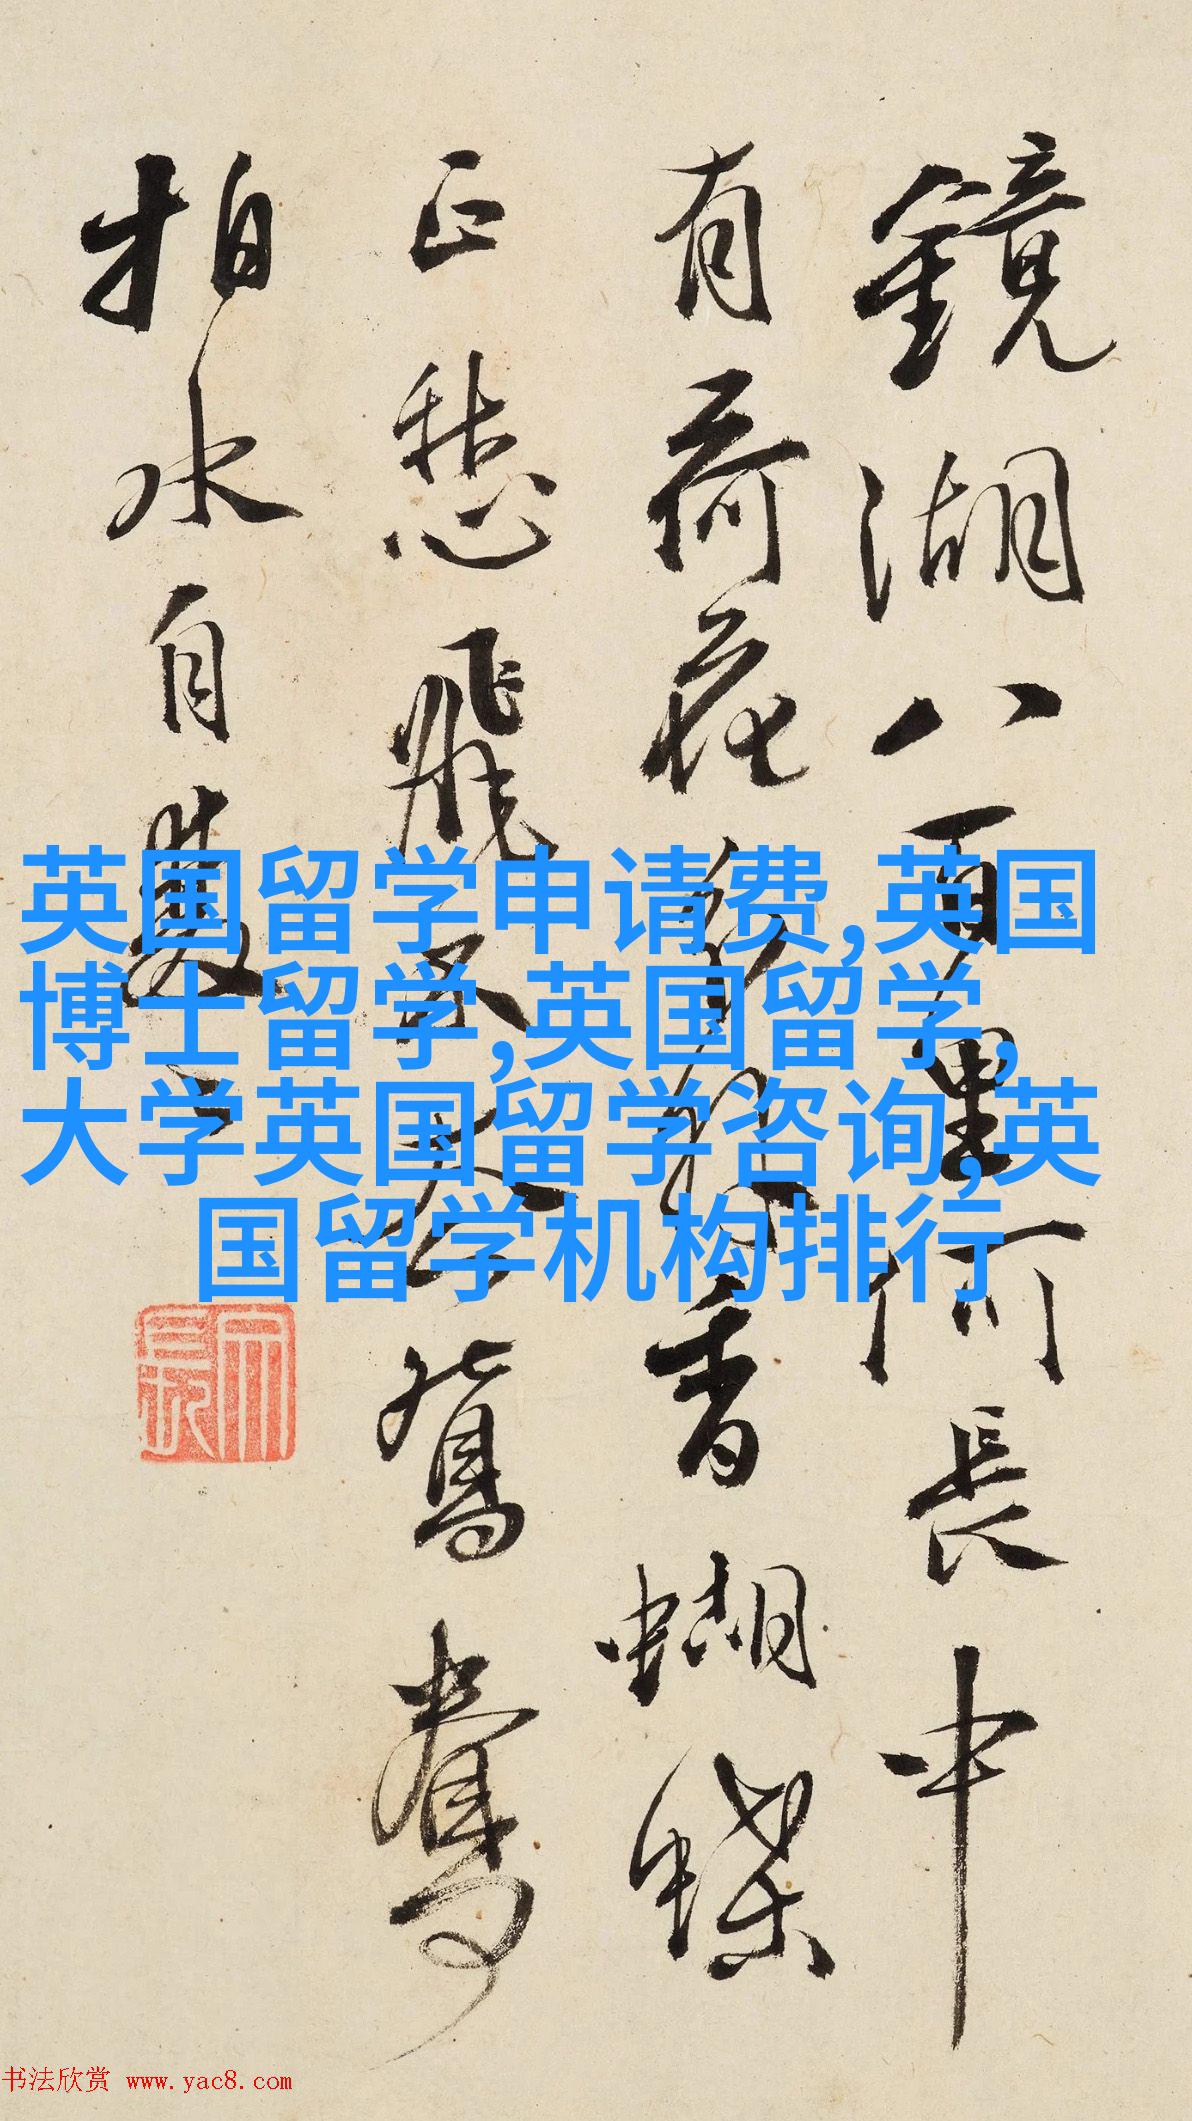 鏡湖八百里何長中
有荷花分外香蝴蝶
正愁飛不去鴛鴦
拍水自雙
英国留学申请费,英国
博士留学,英国留学,
大学英国留学咨询,英
国留学机构排行
书法欣赏 www.yac8.com